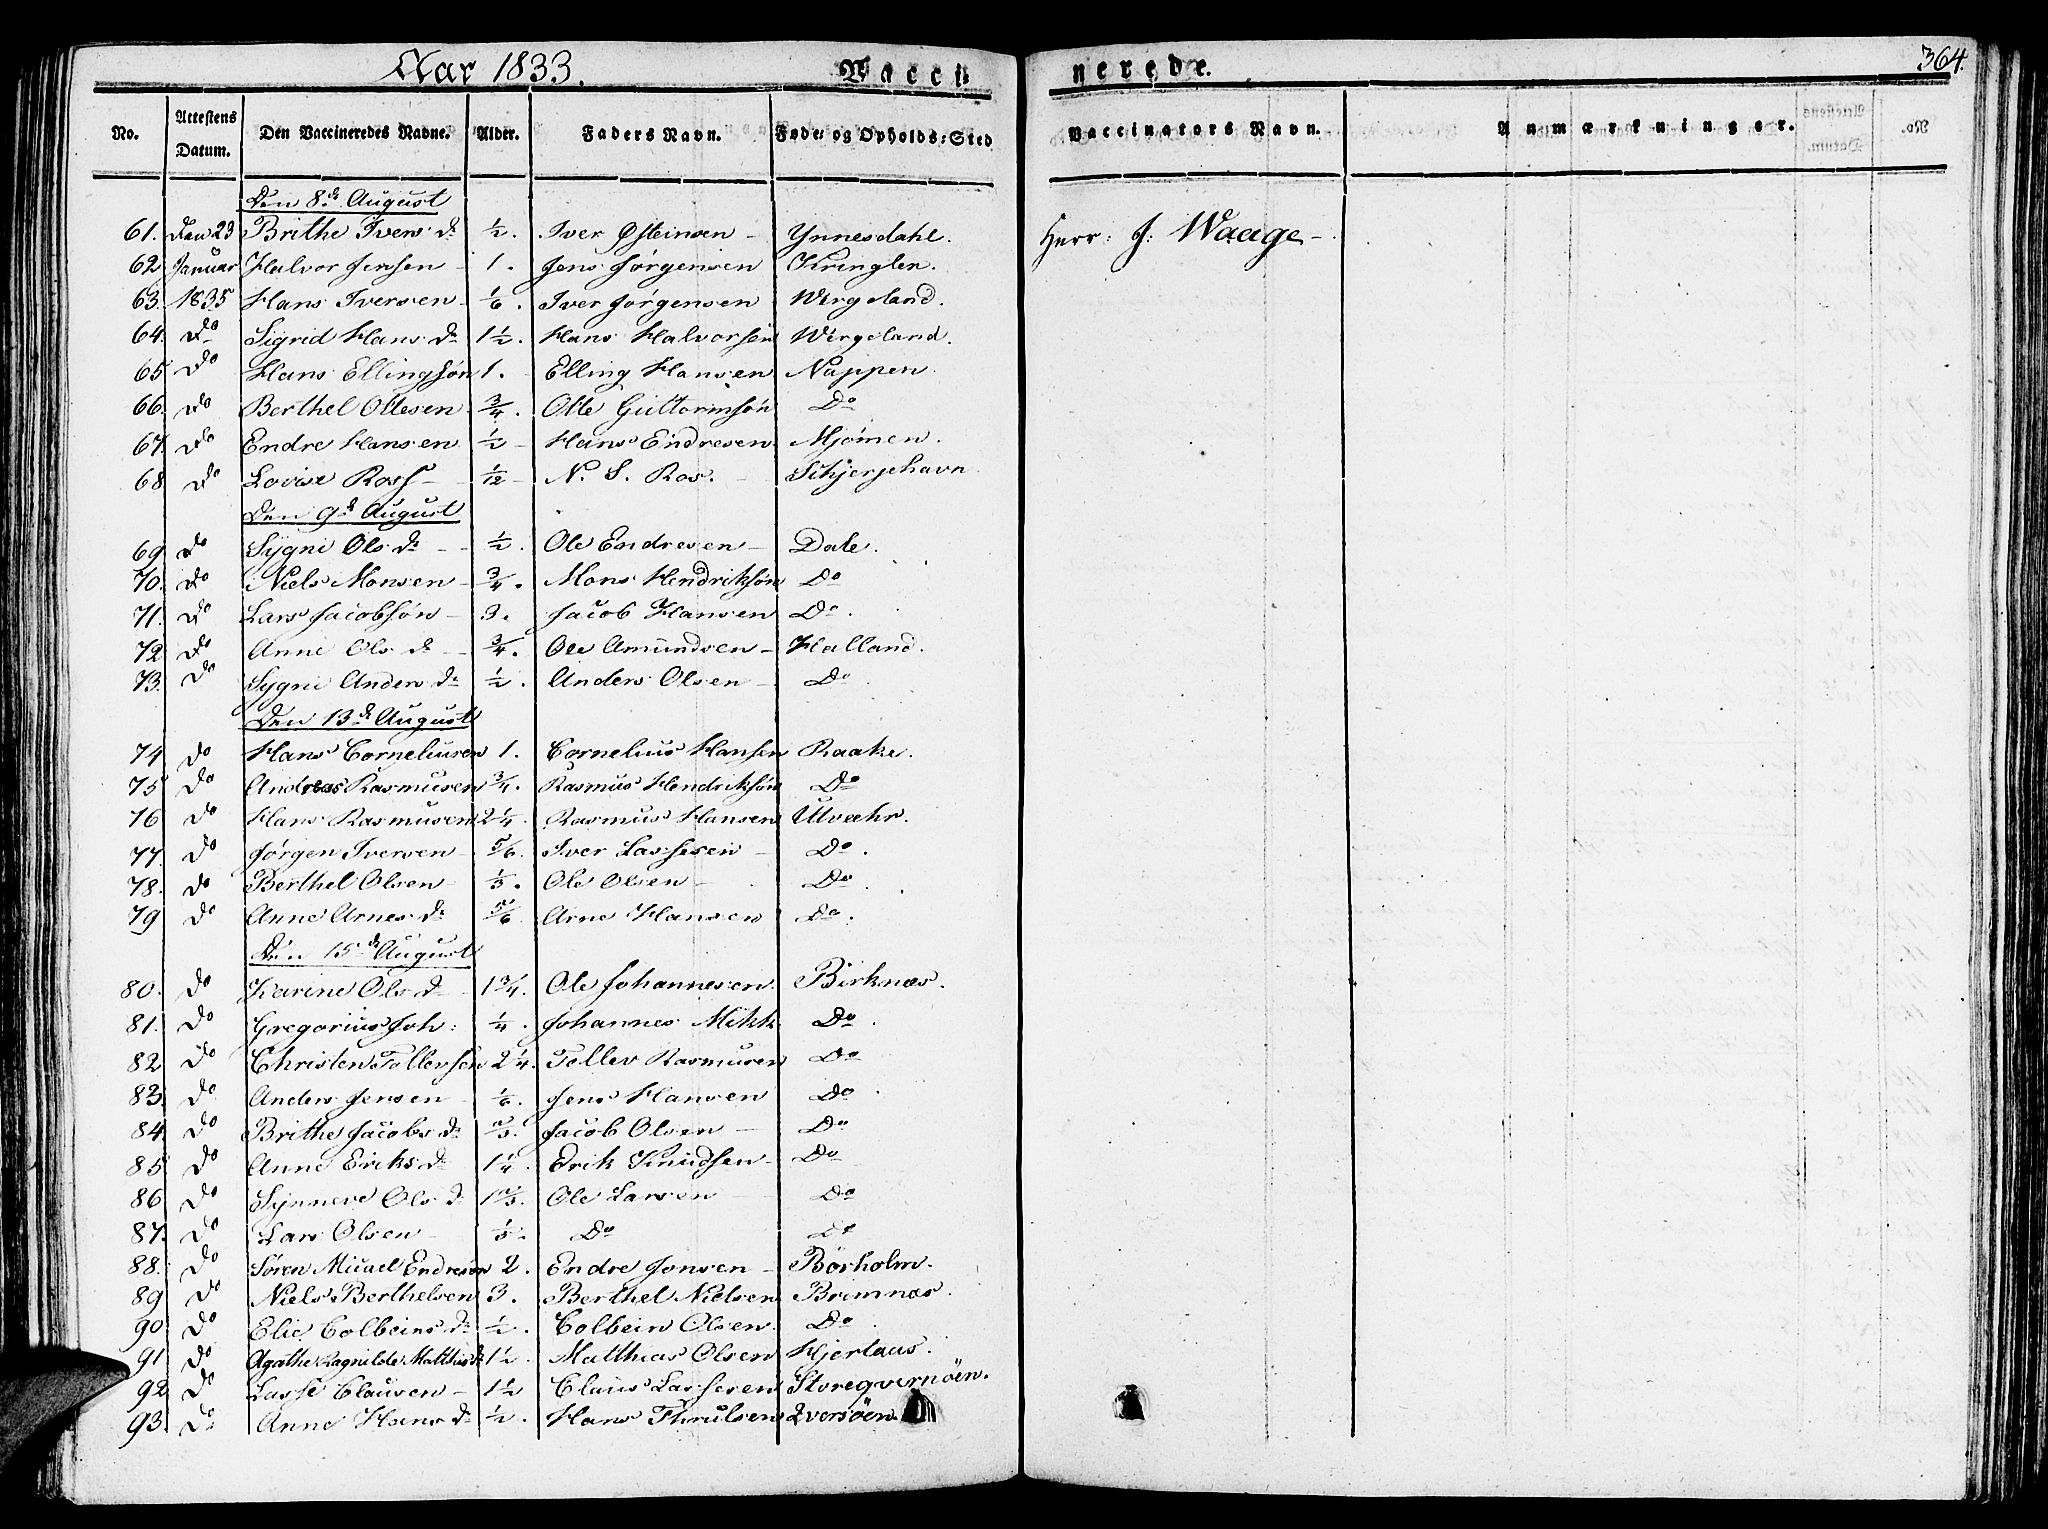 Aar 1833. Vacci- nerede. 364.
No. Attestens Datum. Den Vaccineredes Navne. Alder. Faders Navn. Føde- og Opholds-Sted Vaccinators Navn. Anmærkninger.
Den 8de August
61. Den 23 Brithe Ivers d. ½. Iver Østeinsen Ynnesdahl. Herr: J: Waage
62 Januar Halvor Jensen 1. Jens Jørgensen Kringlen.
63. 1835 Hans Iversen 1/6. Iver Jørgensen Wergeland.
64. do Sigrid Hans d. 1½. Hans Halvorsen Wergeland.
65 do Hans Ellingsøn 1. Elling Hansen Nappen
66. do Berthel Ollesen ¾. Olle Guttormsøn Do
67. do Endre Hansen ½ Hans Endresen Mjømen.
68 do Lovise Ross 1/12 N. S. Ros. Schjerjehavn
Den 9d August
69 do Sygni Ols d. ½. Ole Endresen Dale.
70. do Niels Monsen ¾. Mons Hendriksøn Do
71. do Lars Jacobsøn 3. Jacob Hansen Do.
72 do Anne Ols d. ¾. Ole Amundsen Halland.
73. do Sygni Anders d. ½. Anders Olsen Do
Den 13de August
74 do Hans Corneliusen 1. Cornelius Hansen Raake.
75 do Andreas Rasmusen ¾. Rasmus Hendriksøn Do
76 do Hans Rasmusen 2¼. Rasmus Hansen Utvæhr.
77. do Jørgen Iversen 5/6. Iver Lassesen Do.
78. do Berthel Olsen 1/3. Ole Olsen Do
79 do Anne Arnes d. 5/6 Arne Hansen Do.
Den 15de August
80. do Karine Ols d. 1¾. Ole Johannesen. Birknæs.
81. do Gregorius Joh: ¼. Johannes Mikk Do.
82 do Christen Tollevsen 2¼. Tollev Rasmusen Do
83. do Anders Jensen 1/6. Jens Hansen Do.
84. do Brithe Jacobs d. 2/3. Jacob Olsen Do
85 do Anne Eriks d. 1¼. Erik Knudsen Do
86 do Synneve Ols d. 1 2/3. Ole Larsen Do
87. do Lars Olsen 1/3. Do Do
88. do Søren Micael Endresen 2. Endre Jonsen Borholm.
89 do Niels Berthelsen 3. Berthel Nielsen Brimnæs.
90 do Elie Colbeins d. ½. Colbein Olsen. Do.
91 do Agathe Ragnilde Matthis d. 1½. Matthias Olsen Hjertaas.
92 do Lasse Clausen 1½ Claus Lassesen Storeqvernøen.
93. do Anne Hans d. ½. Hans Thrulsen Qversøen.